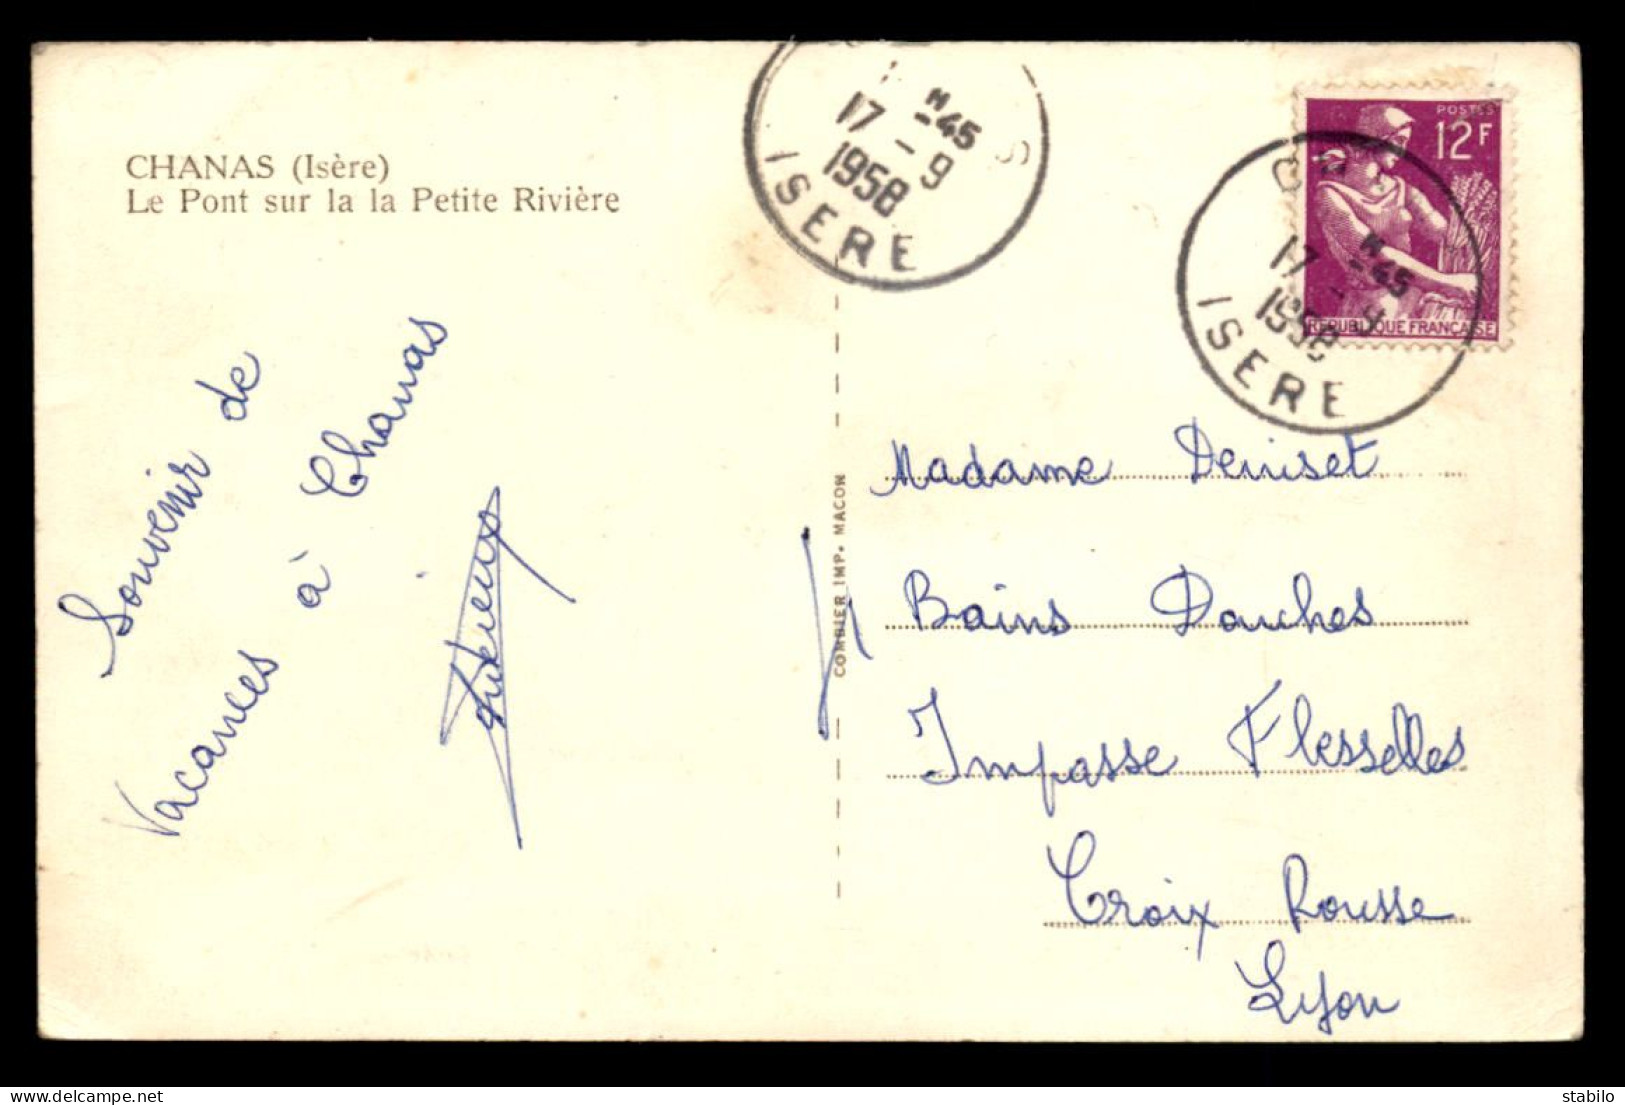 CHANAS (Isère)
Le Pont sur la la Petite Rivière
17 -9
H -45
1958
ISERE
POSTES
12F
REPUBLIQUE FRANÇAISE
17 -9
H -45
1958
ISERE
Souvenir de
Vacances à Chanas
COMBIER IMP. MACON
Madame Deniset
Bains Douches
Impasse Flesselles
Croix Rousse
Lyon
delcampe.net
stabilo